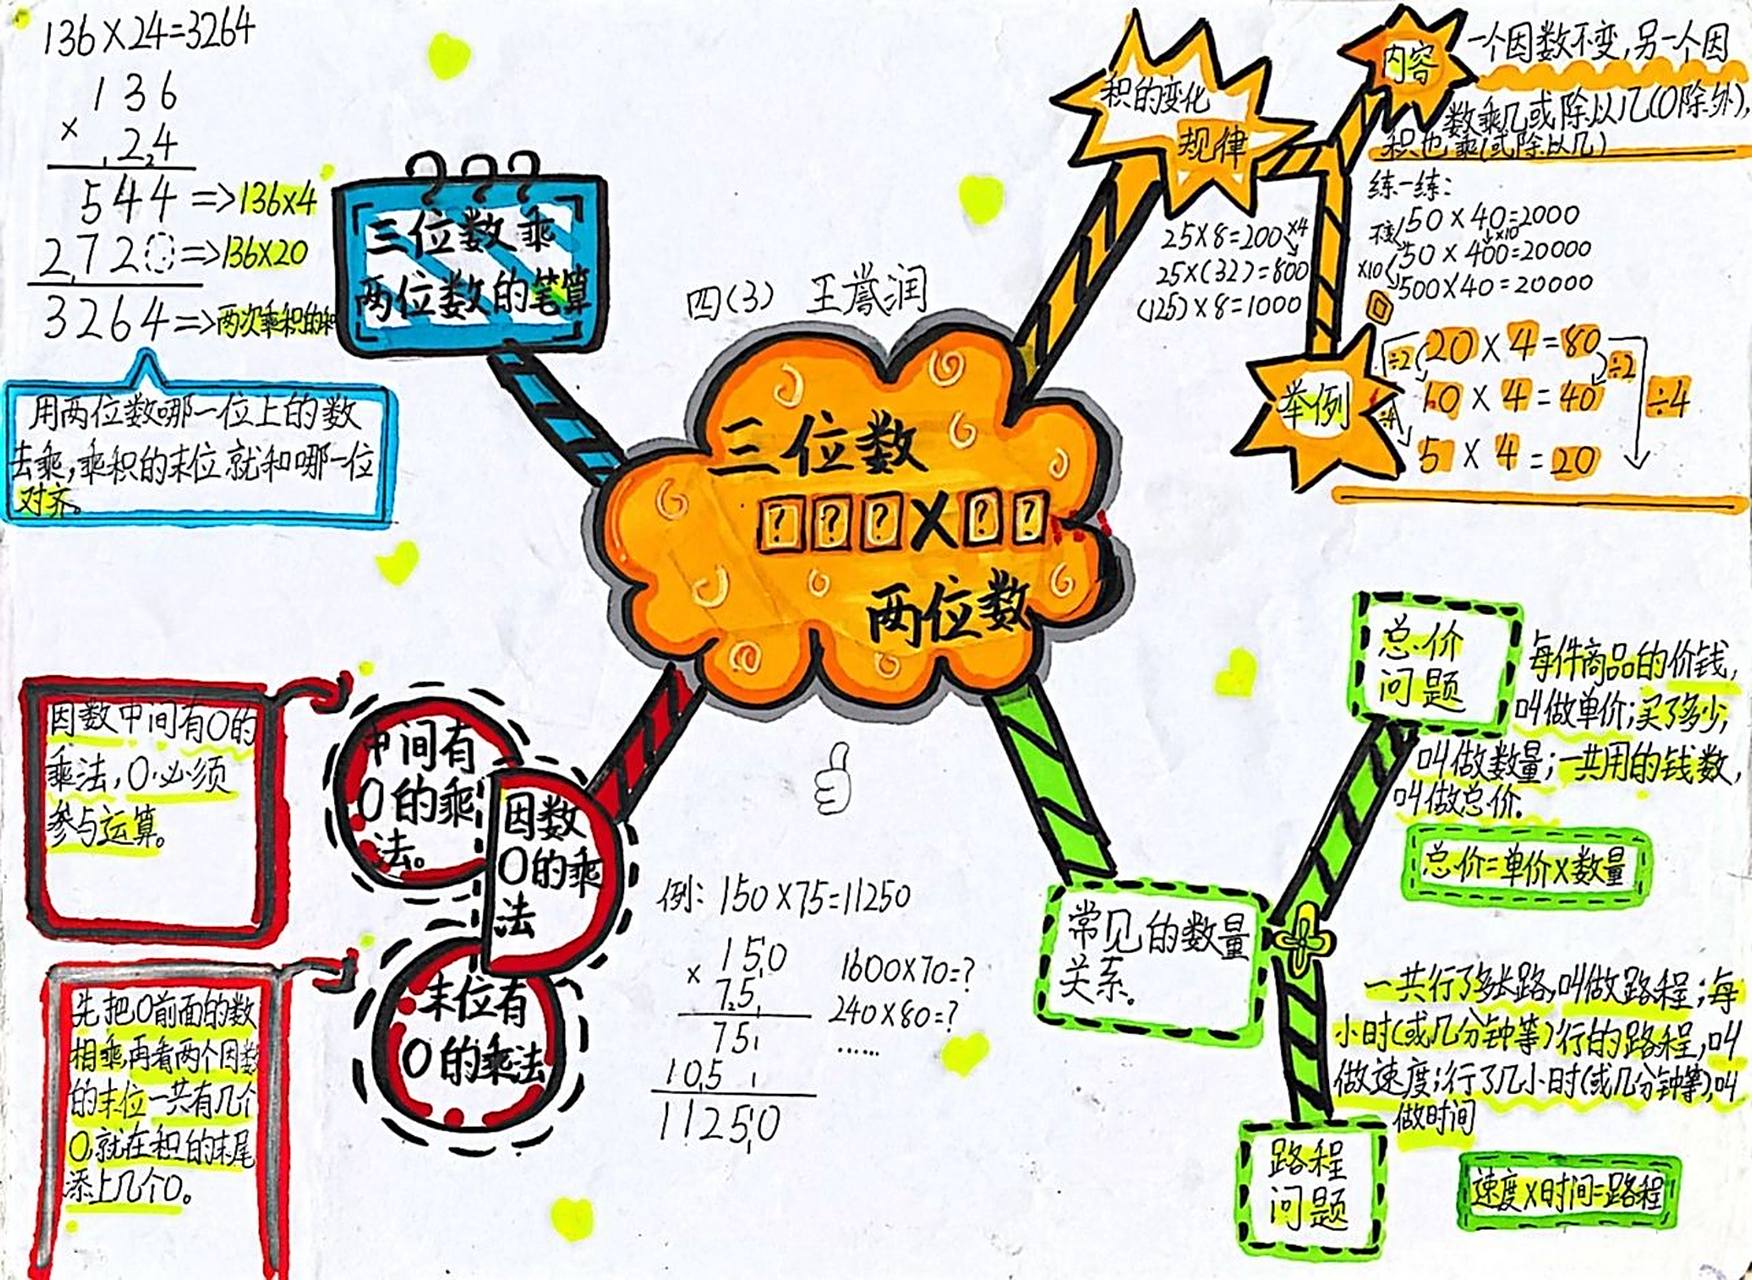 136×24=3264
136
× 24
544 =>136×4
2720=>136×20
3264=>两次乘积的和
用两位数哪一位上的数
去乘,乘积的末位就和哪一位
对齐。
三位数乘
两位数的笔算
四(3) 王誉润
三位数
???×??
两位数
积的变化
规律
内容
一个因数不变,另一个因
数乘几或除以几(0除外),
积也乘(或除以几)
练一练:
25×8=200
×4
25×(32)=800
(125)×8=1000
不变
50×40=2000
×10
50×400=20000
×10
500×40=20000
举例
÷2
20×4=80
÷2
10×4=40
÷4
÷4
5×4=20
因数中间有0的
乘法,0必须
参与运算。
中间有
0的乘
法。
因数
0的乘
法
末位有
0的乘法
先把0前面的数
相乘,再看两个因数
的末位一共有几个
0,就在积的末尾
添上几个0。
例:150×75=11250
150
× 75
75
105
11250
1600×70=?
240×80=?
……
常见的数量
关系。
总价
问题
每件商品的价钱,
叫做单价;买了多少,
叫做数量;一共用的钱数,
叫做总价.
总价=单价×数量
一共行了多长路,叫做路程;每
小时(或几分钟等)行的路程,叫
做速度;行了几小时(或几分钟等),叫
做时间
路程
问题
速度×时间=路程